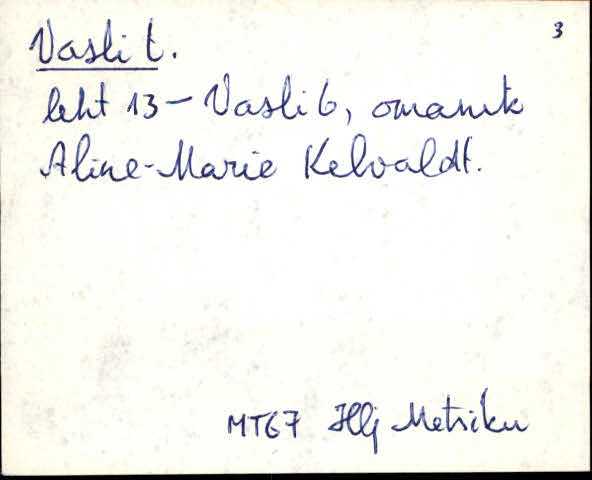 3
Vasli t.
leht 13 – Vasli 6, omanik
Aline-Marie Kelvaldt.
MT67 Hlj Metsiku